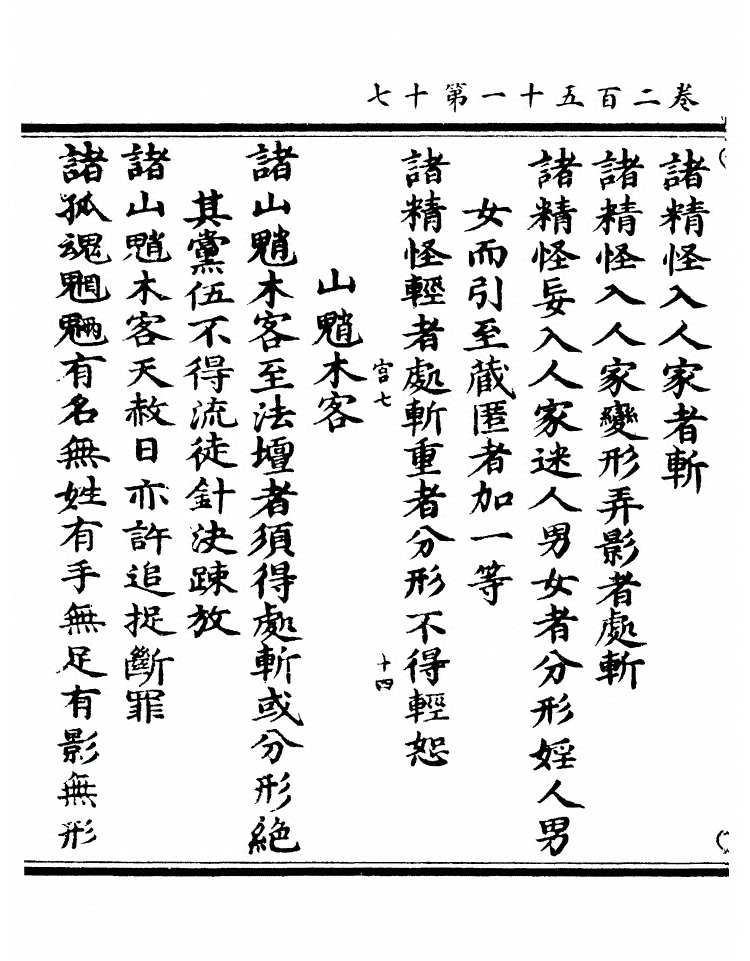 卷二百五十一第十七
諸精怪入人家者斬
諸精怪入人家變形弄影者處斬
諸精怪妄入人家迷人男女者分形婬人男
女而引至藏匿者加一等
諸精怪輕者處斬重者分形不得輕恕
宫七
十四
山魈木客
諸山魈木客至法壇者須得處斬或分形絶
其黨伍不得流徒針決踈放
諸山魈木客天赦日亦許追捉斷罪
諸孤魂魍魎有名無姓有手無足有影無形